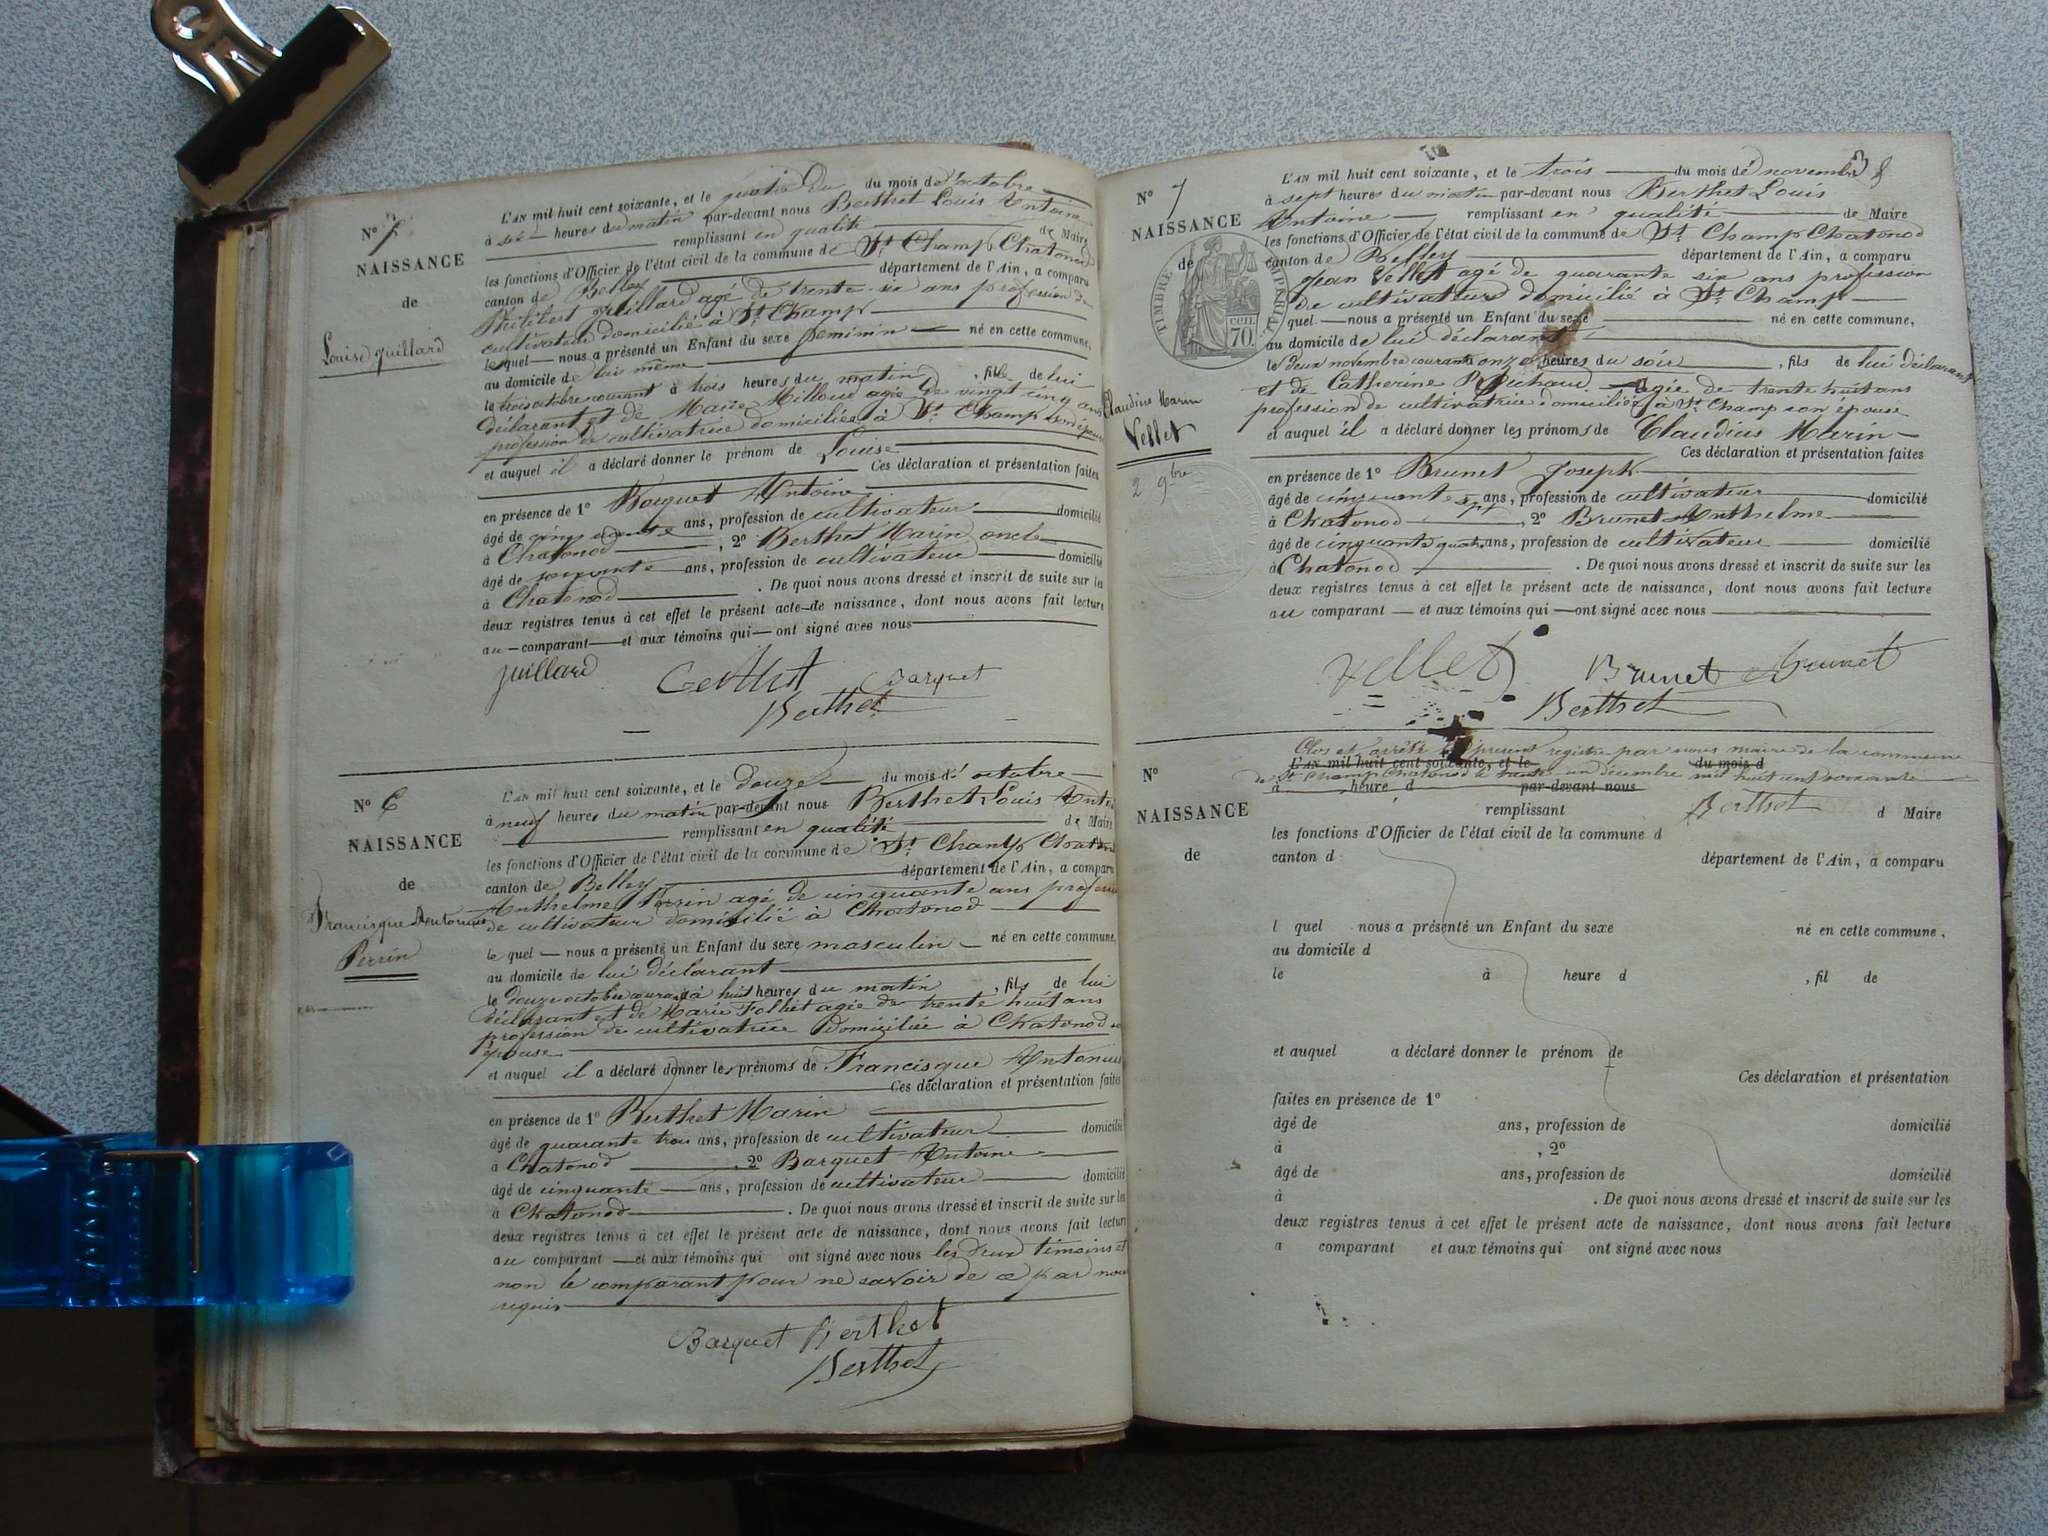 Nº
NAISSANCE
de
Louise Juillard
L'AN mil huit cent soixante, et le quatre du du mois d'octobre
à six heures du matin par-devant nous Berthet Louis Antoine
remplissant en qualité de Maire
les fonctions d'Officier de l'état civil de la commune de St Champ Chatonod
canton de Belley département de l'Ain, a comparu
Philibert Juillard agé de trente six ans profession de
cultivateur domicilié à St Champ
lequel nous a présenté un Enfant du sexe feminin né en cette commune,
au domicile de lui même
le trois octobre courant à trois heures du matin, fille de lui
déclarant et de Marie Milloud agée de vingt cinq ans
profession de cultivatrice domiciliée à St Champ son épouse
et auquel il a déclaré donner le prénom de Louise
Ces déclaration et présentation faites
en présence de 1º Barquet Antoine
âgé de cinquante ans, profession de cultivateur domicilié
à Chatonod, 2º Berthet Marin oncle
âgé de soixante ans, profession de cultivateur domicilié
à Chatonod. De quoi nous avons dressé et inscrit de suite sur les
deux registres tenus à cet effet le présent acte de naissance, dont nous avons fait lecture
au comparant et aux témoins qui ont signé avec nous
Juillard Berthet Barquet
Berthet
Nº 6
NAISSANCE
de
Francisque Antonius
Perrin
L'AN mil huit cent soixante, et le douze du mois d'octobre
à neuf heures du matin par-devant nous Berthet Louis Antoine
remplissant en qualité de Maire
les fonctions d'Officier de l'état civil de la commune de St Champ Chatonod
canton de Belley département de l'Ain, a comparu
Anthelme Perrin agé de cinquante ans profession
de cultivateur domicilié à Chatonod
le quel nous a présenté un Enfant du sexe masculin né en cette commune,
au domicile de lui déclarant
le douze octobre courant à huit heures du matin, fils de lui
déclarant et de Marie Folliet agée de trente huit ans
profession de cultivatrice domiciliée à Chatonod son
épouse
et auquel il a déclaré donner les prénoms de Francisque Antonius
Ces déclaration et présentation faites
en présence de 1º Berthet Marin
âgé de quarante trois ans, profession de cultivateur domicilié
à Chatonod, 2º Barquet Antoine
âgé de cinquante ans, profession de cultivateur domicilié
à Chatonod. De quoi nous avons dressé et inscrit de suite sur les
deux registres tenus à cet effet le présent acte de naissance, dont nous avons fait lecture
au comparant et aux témoins qui ont signé avec nous les deux témoins et
non le comparant pour ne savoir de ce par nous
requis
Barquet Berthet
Berthet
38
Nº 7
NAISSANCE
de
TIMBRE IMPERIAL
cen. 70.
Claudius Marin
Vellet
2 9bre
L'AN mil huit cent soixante, et le trois du mois de novembre
à sept heures du matin par-devant nous Berthet Louis
Antoine remplissant en qualité de Maire
les fonctions d'Officier de l'état civil de la commune de St Champ Chatonod
canton de Belley département de l'Ain, a comparu
Jean Vellet agé de quarante six ans profession
de cultivateur domicilié à St Champ
quel nous a présenté un Enfant du sexe né en cette commune,
au domicile de lui déclarant
le deux novembre courant à onze heures du soir, fils de lui déclarant
et de Catherine agée de trente huit ans
profession de cultivatrice domiciliée à St Champ son épouse
et auquel il a déclaré donner les prénoms de Claudius Marin
Ces déclaration et présentation faites
en présence de 1º Brunet Joseph
âgé de cinquante sept ans, profession de cultivateur domicilié
à Chatonod, 2º Brunet Anthelme
âgé de cinquante quatre ans, profession de cultivateur domicilié
à Chatonod. De quoi nous avons dressé et inscrit de suite sur les
deux registres tenus à cet effet le présent acte de naissance, dont nous avons fait lecture
au comparant et aux témoins qui ont signé avec nous
Vellet Brunet Brunet
Berthet
Nº
NAISSANCE
de
Clos et arrêté le présent registre par nous maire de la commune
L'AN mil huit cent soixante, et le du mois d
de St Champ Chatonod le trente un décembre mil huit cent soixante
à heure d par-devant nous
Berthet
remplissant d Maire
les fonctions d'Officier de l'état civil de la commune d
canton d département de l'Ain, a comparu
l quel nous a présenté un Enfant du sexe né en cette commune,
au domicile d
le à heure d, fil de
et auquel a déclaré donner le prénom de
Ces déclaration et présentation
faites en présence de 1º
âgé de ans, profession de domicilié
à, 2º
âgé de ans, profession de domicilié
à. De quoi nous avons dressé et inscrit de suite sur les
deux registres tenus à cet effet le présent acte de naissance, dont nous avons fait lecture
a comparant et aux témoins qui ont signé avec nous